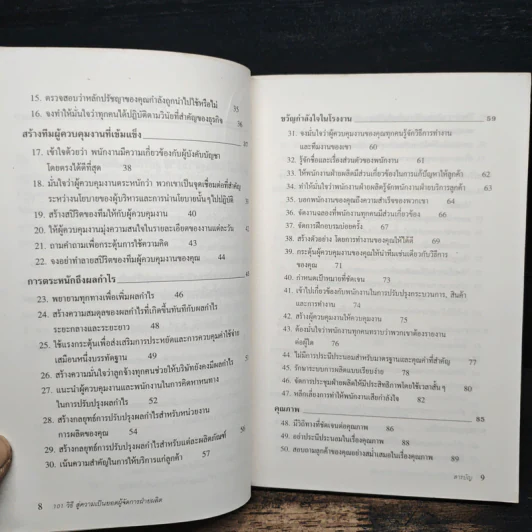 15. ตรวจสอบว่าหลักปรัชญาของคุณกำลังถูกนำไปใช้หรือไม่ 35
16. จงทำให้มั่นใจว่าทุกคนได้ปฏิบัติตามวินัยที่สำคัญของธุรกิจ 36
สร้างทีมผู้ควบคุมงานที่เข้มแข็ง
17. เข้าใจด้วยว่า พนักงานมีความเกี่ยวข้องกับผู้บังคับบัญชา
โดยตรงได้ดีที่สุด 38
18. มั่นใจว่าผู้ควบคุมงานตระหนักว่า พวกเขาเป็นจุดเชื่อมต่อที่สำคัญ
ระหว่างนโยบายของผู้บริหารและการนำนโยบายนั้นๆ ไปปฏิบัติ
19. สร้างสปิริตของทีมให้กับผู้ควบคุมงาน 40
20. ให้ผู้ควบคุมงานมุ่งความสนใจในรายละเอียดของงานแต่ละวัน
21. ถามคำถามเพื่อกระตุ้นการใช้ความคิด 43
22. จงอย่าทำลายสปิริตของทีมผู้ควบคุมงานของคุณ 44
การตระหนักถึงผลกำไร
23. พยายามทุกทางเพื่อเพิ่มผลกำไร 46
24. สร้างความสมดุลของผลกำไรที่เกิดขึ้นทันทีกับผลกำไร
ระยะกลางและระยะยาว 48
25. ใช้แรงกระตุ้นเพื่อส่งเสริมการประหยัดและการควบคุมค่าใช้จ่าย
เสมือนหนึ่งวีรบุรุษรัฐาน
26. สร้างความมั่นใจว่าลูกจ้างทุกคนช่วยให้บริษัทยังคงมีผลกำไร
27. แนะนำผู้ควบคุมงานและพนักงานในการคิดหาหนทาง
ในการปรับปรุงผลกำไร 52
28. สร้างกลยุทธ์การปรับปรุงผลกำไรสำหรับหน่วยงาน
การผลิตของคุณ 54
29. สร้างกลยุทธ์การปรับปรุงผลกำไรสำหรับแต่ละผลิตภัณฑ์
30. เน้นความสำคัญในการให้บริการแก่ลูกค้า 57
8 101 วิธี สู่ความเป็นยอดผู้จัดการฝ่ายผลิต
ขวัญกำลังใจในโรงงาน 59
31. จงมั่นใจว่าผู้ควบคุมงานของคุณทุกคนรู้จักวิธีการทำงาน
และทีมงานของเขา 60
32. รู้จักชื่อและเรื่องส่วนตัวของพนักงาน 61
33. ให้พนักงานฝ่ายผลิตมีส่วนเกี่ยวข้องในการแก้ปัญหาให้ลูกค้า 62
34. ทำให้มั่นใจว่าพนักงานฝ่ายผลิตรู้จักพนักงานฝ่ายบริการลูกค้า 63
35. บอกพนักงานของคุณถึงความสำเร็จของพวกเขา 64
36. จัดงานฉลองที่พนักงานทุกคนมีส่วนเกี่ยวข้อง 66
37. จัดการฝึกอบรมบ่อยครั้ง 67
38. สร้างตัวอย่าง โดยการทำงานของคุณให้ได้ดี 69
39. กระตุ้นลูกน้องของผู้ควบคุมงานของคุณให้นำทีมเช่นเดียวกับวิธีการ
ของคุณ 71
40. กำหนดเป้าหมายที่ชัดเจน 73
41. เข้าไปเกี่ยวข้องกับพนักงานในการปรับปรุงกระบวนการ, สินค้า
และการทำงาน 74
42. สร้างผู้ควบคุมงานให้ควบคุมงาน 75
43. ต้องมั่นใจว่าพนักงานทุกคนทราบว่าพวกเขาต้องรายงาน
ต่อผู้ใด 76
44. ไม่มีการประนีประนอมสำหรับมาตรฐานและคุณค่าที่สำคัญ 77
45. รักษาระบบการผลิตแบบเรียบง่าย 78
46. จัดการประชุมฝ่ายผลิตให้มีประสิทธิภาพโดยใช้เวลาสั้นๆ
47. หลีกเลี่ยงการทำให้พนักงานเสียกำลังใจ 82
คุณภาพ 85
48. มีวิถีทางที่ชัดเจนต่อคุณภาพ 86
49. อย่าประนีประนอมในเรื่องคุณภาพ 88
50. สอบถามลูกค้าของคุณอย่างสม่ำเสมอในเรื่องคุณภาพ 89
สารบัญ 9